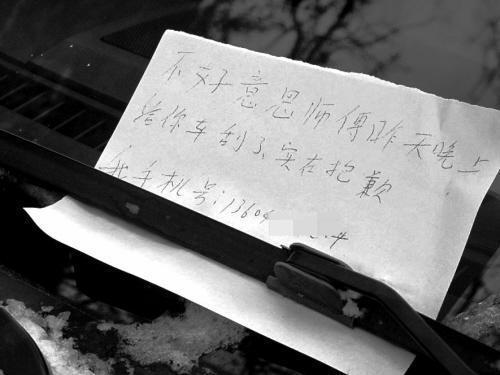 不好意思师傅昨天晚上
给你车刮了,实在抱歉
我手机号:13604